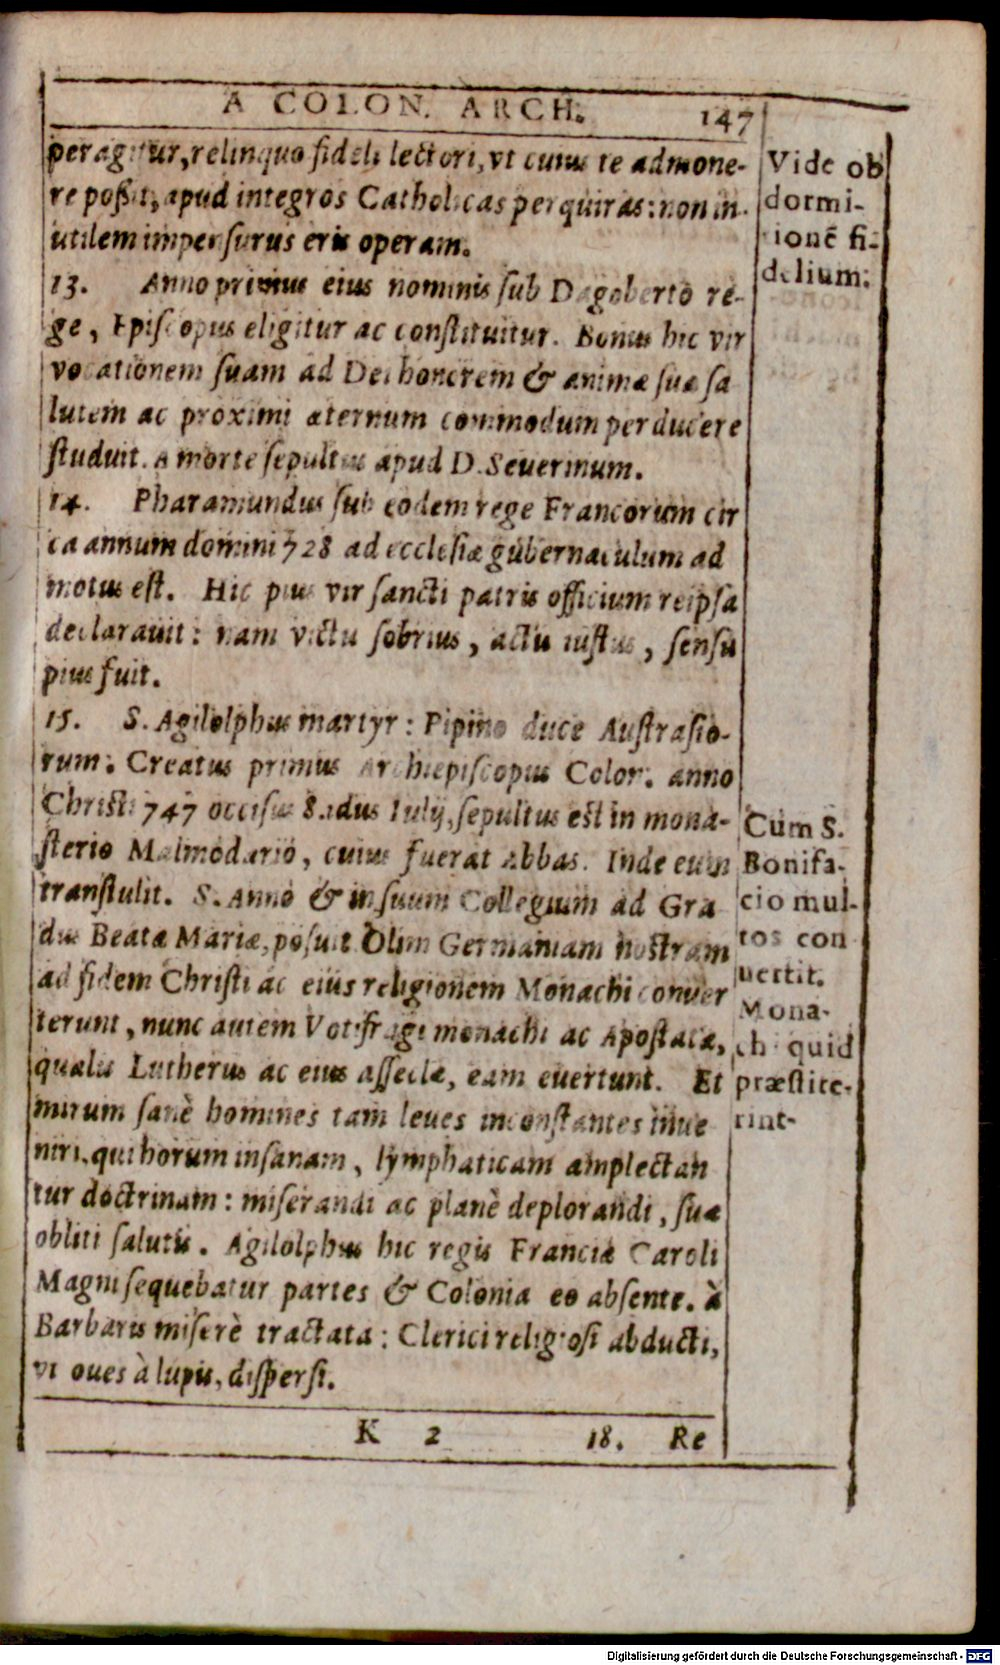 A COLON. ARCH. 147
peragitur, relinquo fideli lectori, vt cuius te admone-
re possit, apud integros Catholicas perquiras: non in-
utilem impensurus eris operam.
Vide ob
dormi-
tionē fi-
delium:
13. Anno primus eius nominis sub Dagoberto re-
ge, Episcopus eligitur ac constituitur. Bonus hic vir
vocationem suam ad Dei honorem & animæ suæ sa
lutem ac proximi æternum commodum perducere
studuit. A morte sepultus apud D. Seuerinum.
14. Pharamundus sub eodem rege Francorum cir
ca annum domini 728 ad ecclesiæ gubernaculum ad
motus est. Hic pius vir sancti patris officium reipsa
declarauit: nam victu sobrius, actu iustus, sensu
pius fuit.
15. S. Agilolphus martyr: Pipino duce Austrasio-
rum: Creatus primus Archiepiscopus Colon. anno
Christi 747 occisus 8. idus Iulij, sepultus est in mona-
sterio Malmodario, cuius fuerat Abbas. Inde eum
transtulit. S. Anno & in suum Collegium ad Gra
dus Beatæ Mariæ, posuit. Olim Germaniam nostram
ad fidem Christi ac eius religionem Monachi conuer
terunt, nunc autem Votifragi monachi ac Apostatæ,
qualis Lutherus ac eius asseclæ, eam euertunt. Et
mirum sanè homines tam leues inconstantes inue
niri, qui horum insanam, lymphaticam amplectan
tur doctrinam: miserandi ac planè deplorandi, suæ
obliti salutis. Agilolphus hic regis Franciæ Caroli
Magni sequebatur partes & Colonia eo absente. à
Barbaris miserè tractata: Clerici religiosi abducti,
vt oues à lupis, dispersi.
Cum S.
Bonifa-
cio mul-
tos con
uertit.
Mona-
chi quid
præstite-
rint-
K 2 18. Re
Digitalisierung gefördert durch die Deutsche Forschungsgemeinschaft - DFG